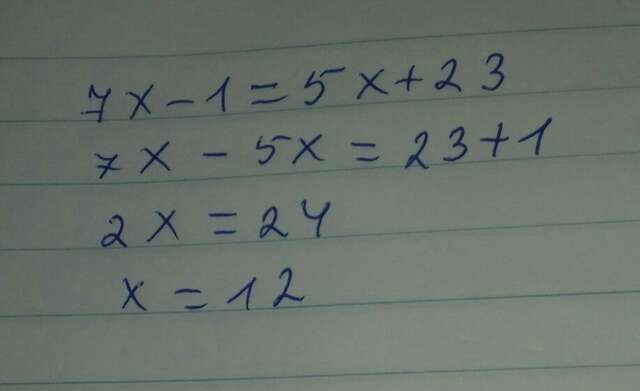 7x-1=5x+23
7x-5x=23+1
2x=24
x=12